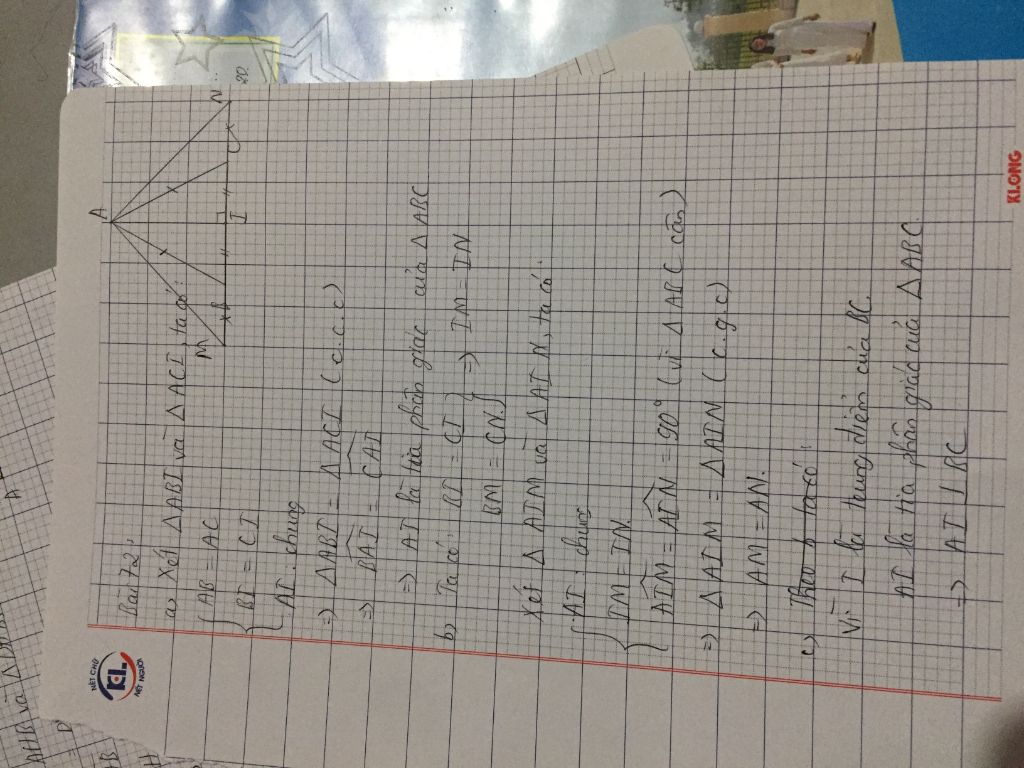 Bài 72:
a, Xét ΔABI và ΔACI, ta có:
AB = AC
BI = CI
AI: chung
=> ΔABI = ΔACI (c.c.c)
=> BAI = CAI
=> AI là tia phân giác của ΔABC
b, Ta có: BI = CI
BM = CN
=> IM = IN
Xét ΔAIM và ΔAIN, ta có:
AI: chung
IM = IN
AIM = AIN = 90° (vì ΔABC cân)
=> ΔAIM = ΔAIN (c.g.c)
=> AM = AN.
c, Theo b ta có:
Vì I là trung điểm của BC
AI là tia phân giác của ΔABC.
=> AI ⊥ BC
A
M
B
I
C
N
NÉT CHỮ
KL
NẾT NGƯỜI
KLONG
AHB và Δ
A